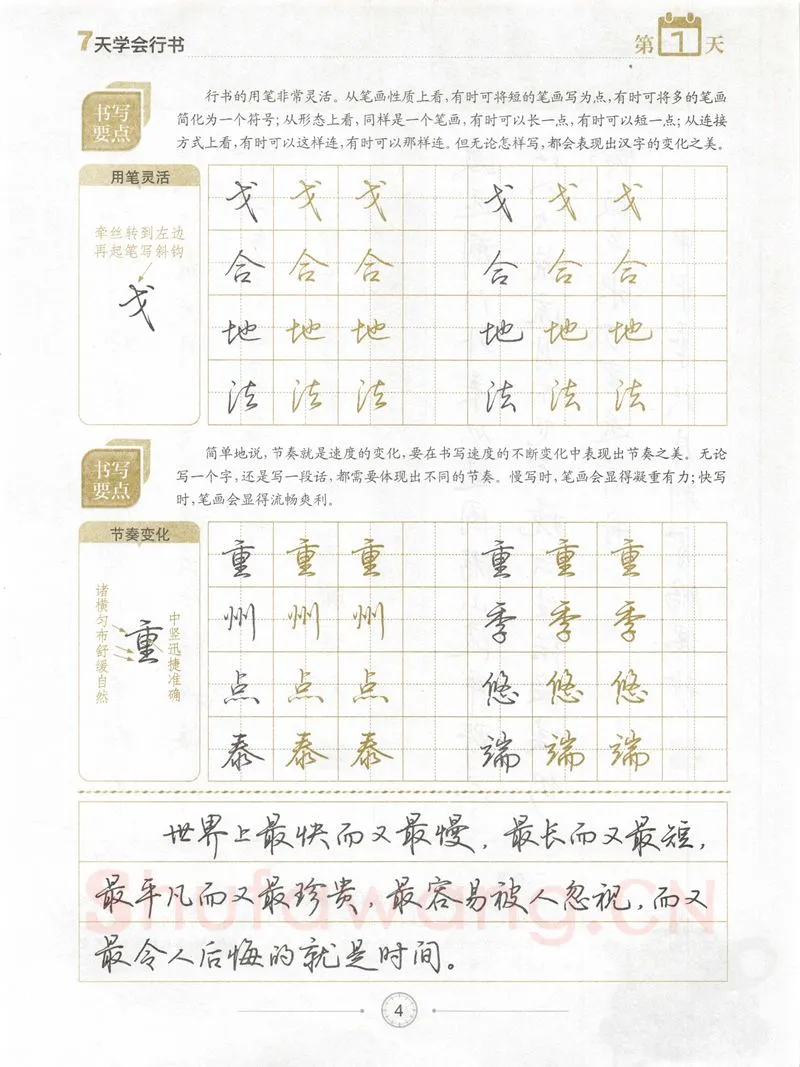 7天学会行书
第1天
书写要点
行书的用笔非常灵活。从笔画性质上看,有时可将短的笔画写为点,有时可将多的笔画
简化为一个符号;从形态上看,同样是一个笔画,有时可以长一点,有时可以短一点;从连接
方式上看,有时可以这样连,有时可以那样连。但无论怎样写,都会表现出汉字的变化之美。
用笔灵活
牵丝转到左边
再起笔写斜钩
戈
戈 戈 戈 戈 戈 戈
合 合 合 合 合 合
地 地 地 地 地 地
法 法 法 法 法 法
书写要点
简单地说,节奏就是速度的变化,要在书写速度的不断变化中表现出节奏之美。无论
写一个字,还是写一段话,都需要体现出不同的节奏。慢写时,笔画会显得凝重有力;快写
时,笔画会显得流畅爽利。
节奏变化
诸横匀布舒缓自然
重
中竖迅捷准确
重 重 重 重 重 重
州 州 州 季 季 季
点 点 点 悠 悠 悠
泰 泰 泰 端 端 端
世界上最快而又最慢,最长而又最短,
最平凡而又最珍贵,最容易被人忽视,而又
最令人后悔的就是时间。
Shufawang.CN
4